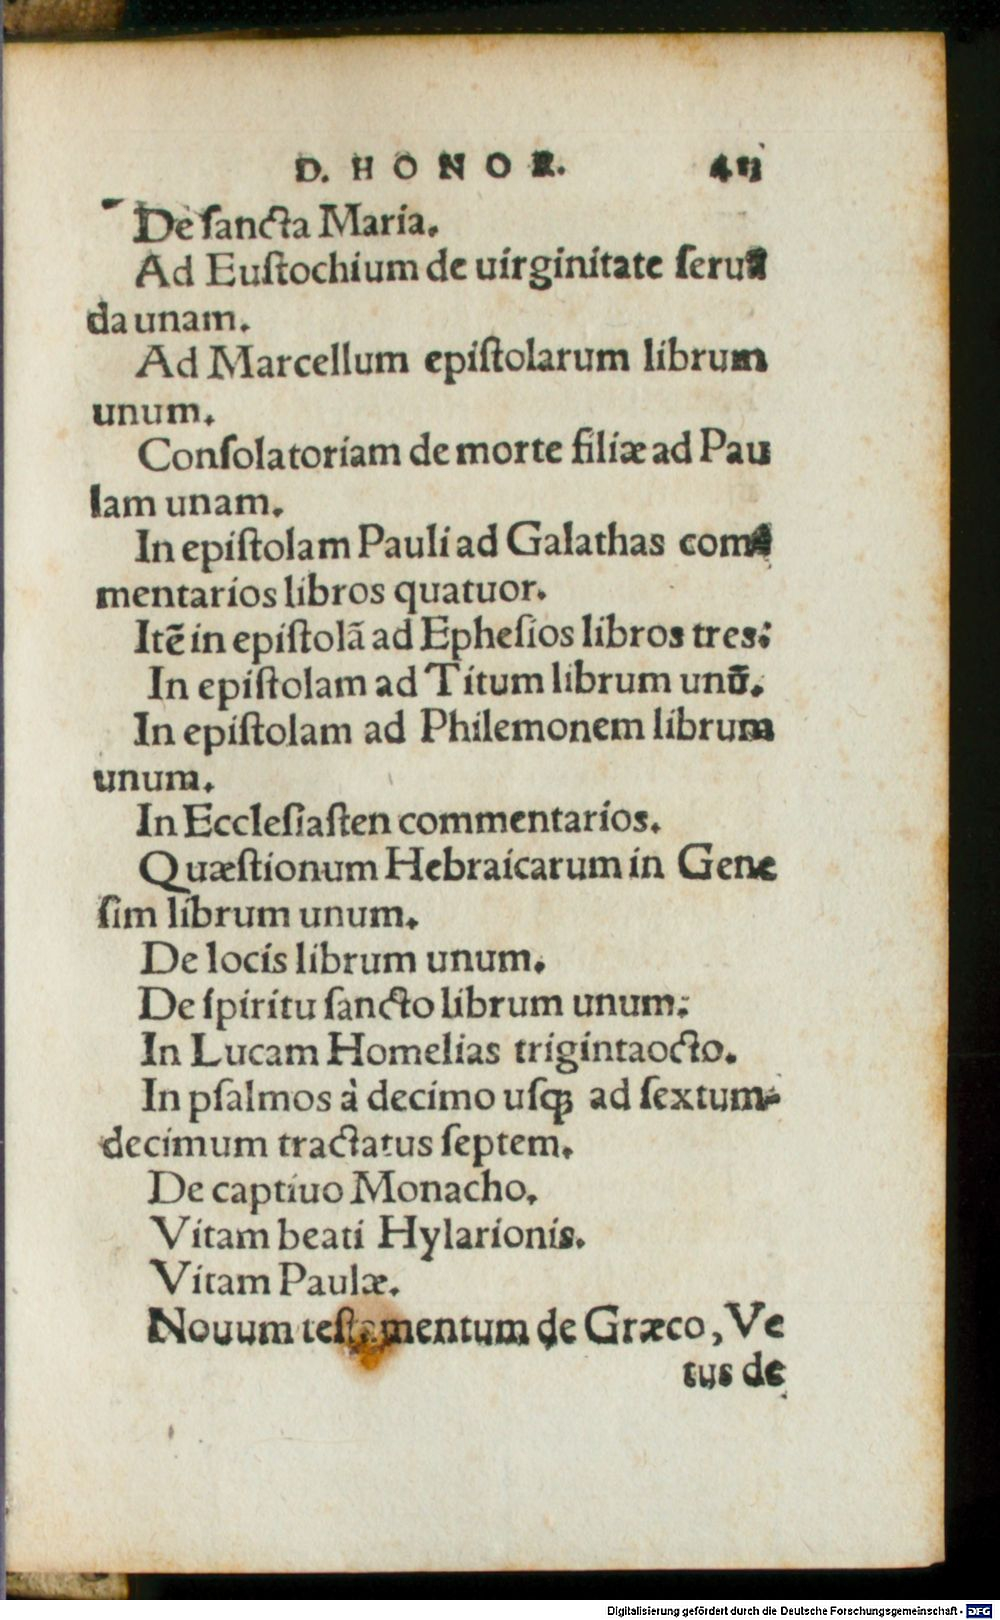 D. HONOR.
De sancta Maria.
Ad Euſtochium de uirginitate ſeruã
da unam.
Ad Marcellum epiſtolarum librum
unum.
Conſolatoriam de morte filiæ ad Pau
lam unam.
In epiſtolam Pauli ad Galathas com⸗
mentarios libros quatuor.
Itẽ in epiſtolã ad Epheſios libros tres.
In epiſtolam ad Titum librum unũ.
In epiſtolam ad Philemonem librum
unum.
In Eccleſiaſten commentarios.
Quæſtionum Hebraicarum in Gene
ſim librum unum.
De locis librum unum.
De ſpiritu ſancto librum unum.
In Lucam Homelias trigintaocto.
In pſalmos à decimo uſq; ad ſextum⸗
decimum tractatus ſeptem.
De captiuo Monacho.
Vitam beati Hylarionis.
Vitam Paulæ.
Nouum teſtamentum de Græco, Ve
tus de
Digitalisierung gefördert durch die Deutsche Forschungsgemeinschaft - DFG